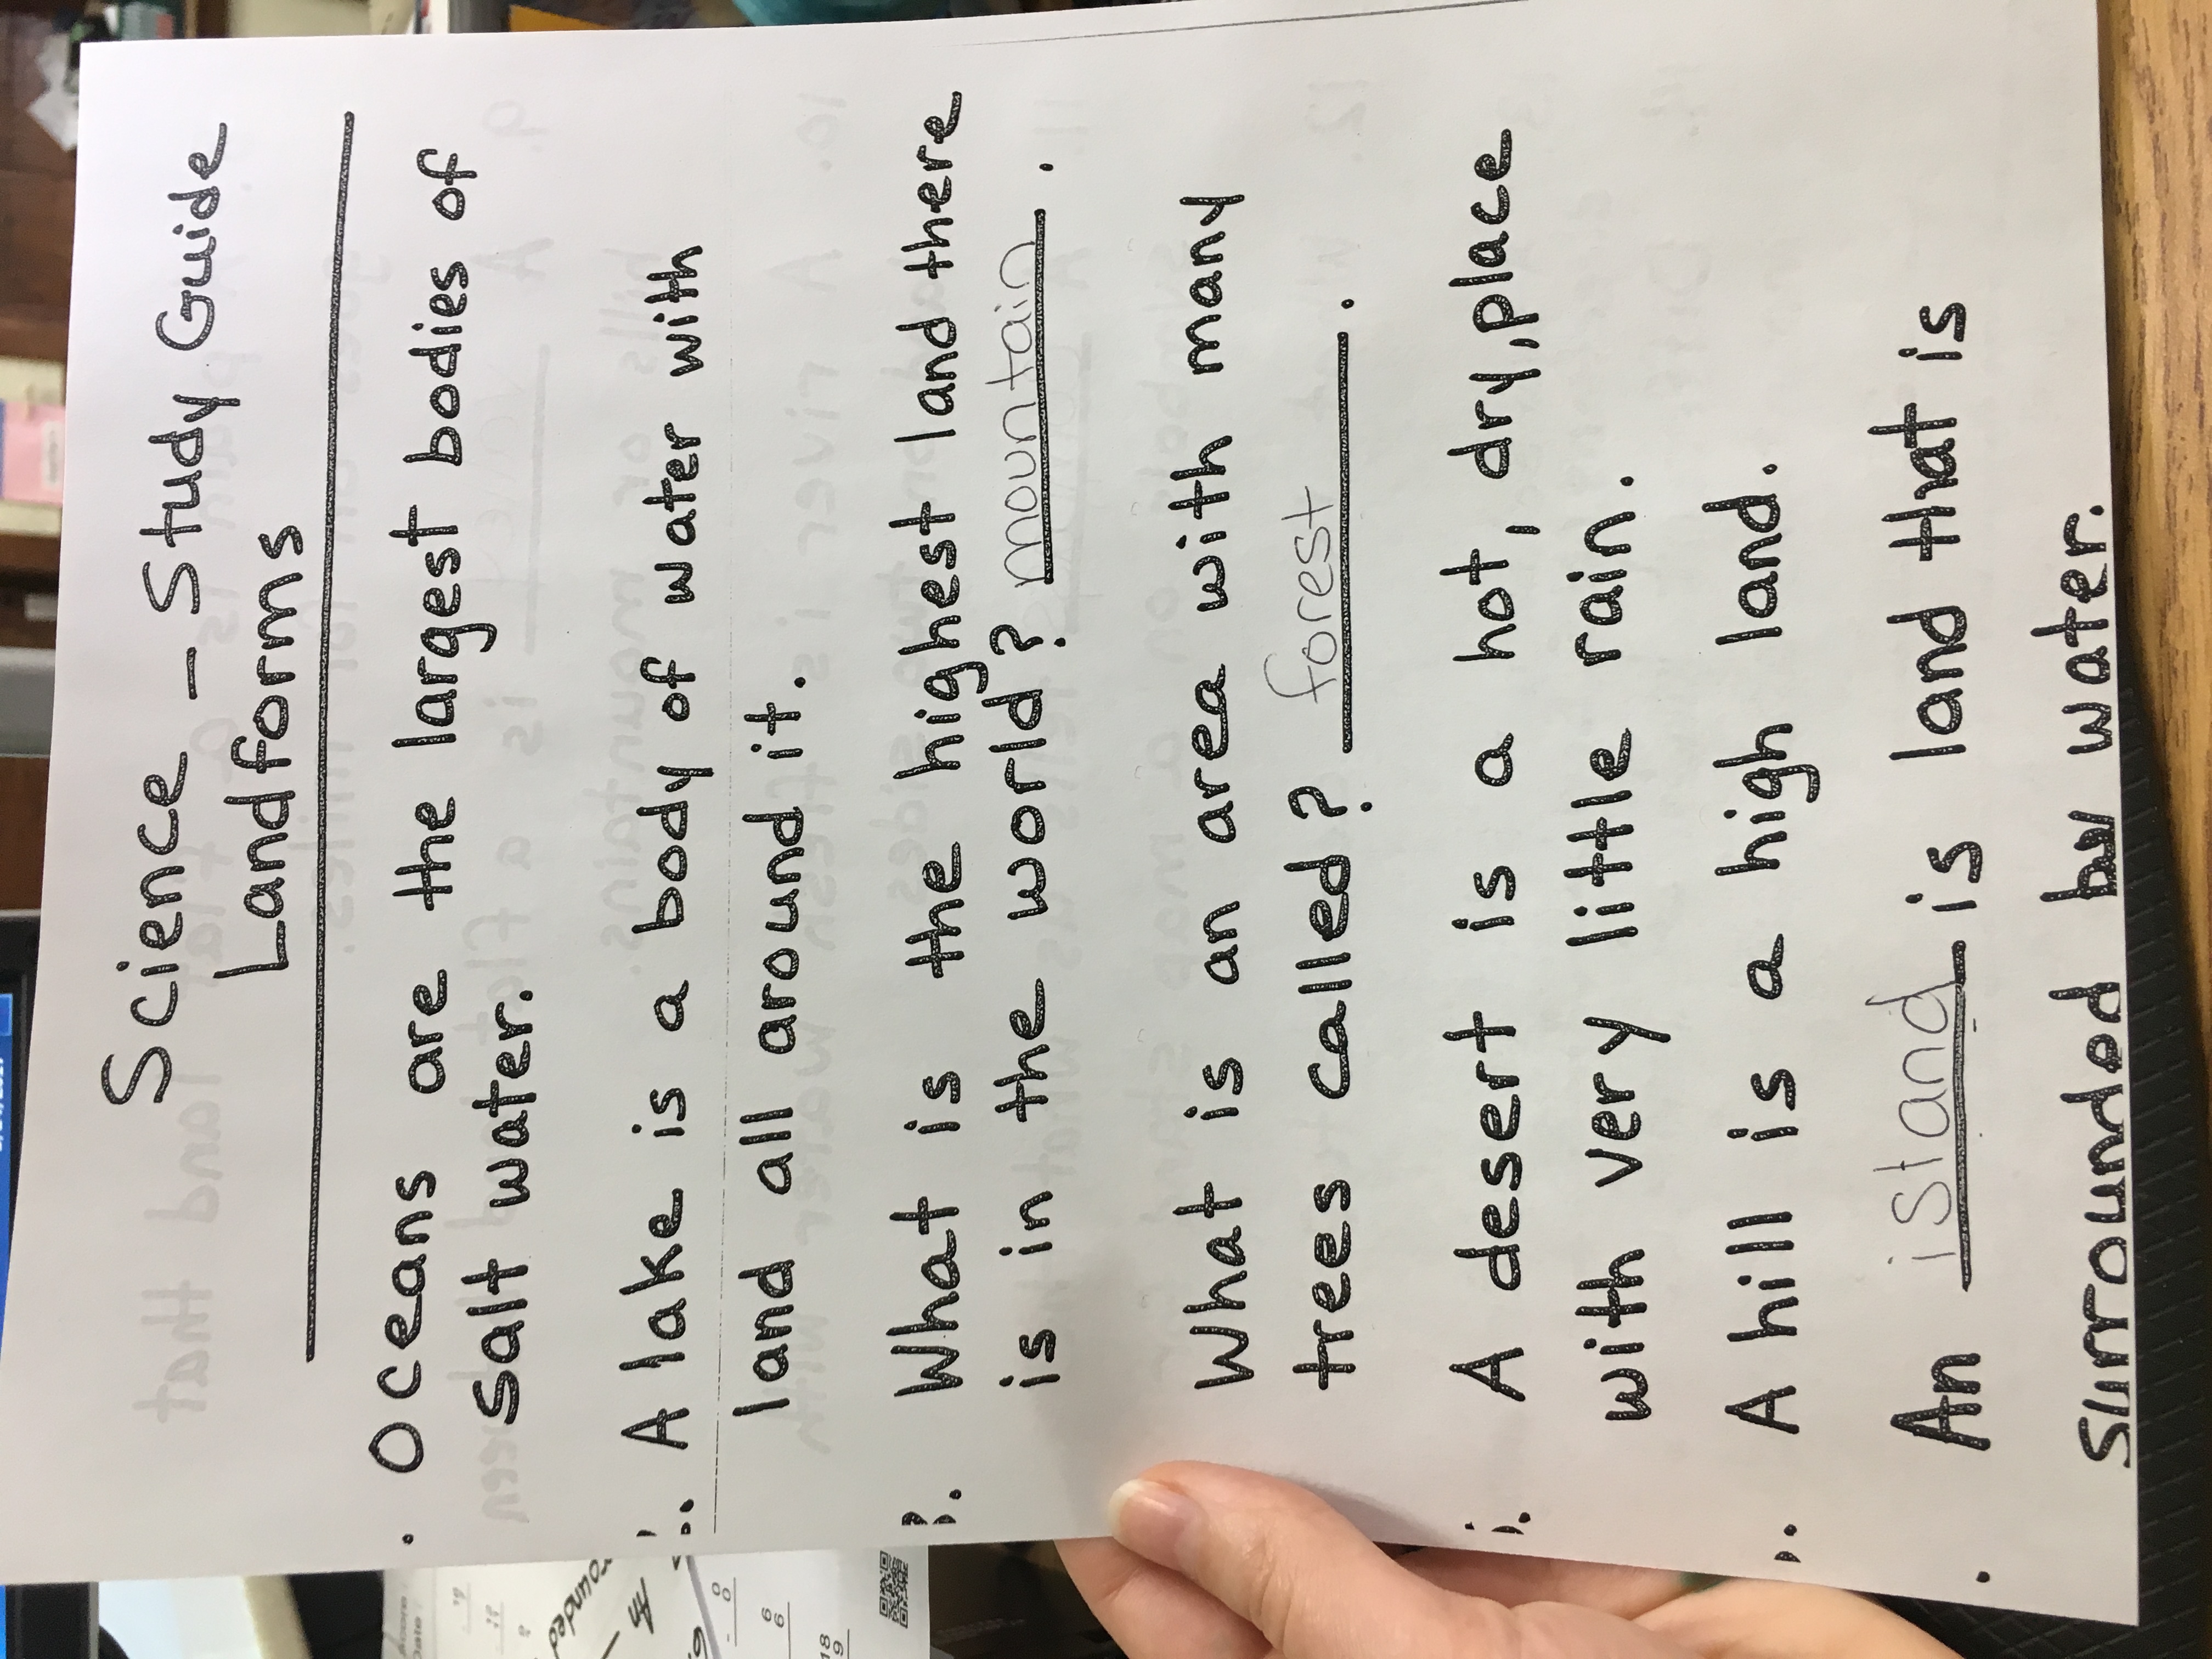 Science - Study Guide
Landforms
. Oceans are the largest bodies of
salt water.
. A lake is a body of water with
land all around it.
. What is the highest land there
is in the world? mountain .
What is an area with many
trees called? forest .
. A desert is a hot, dry, place
with very little rain.
. A hill is a high land.
. An island is land that is
surrounded by water.